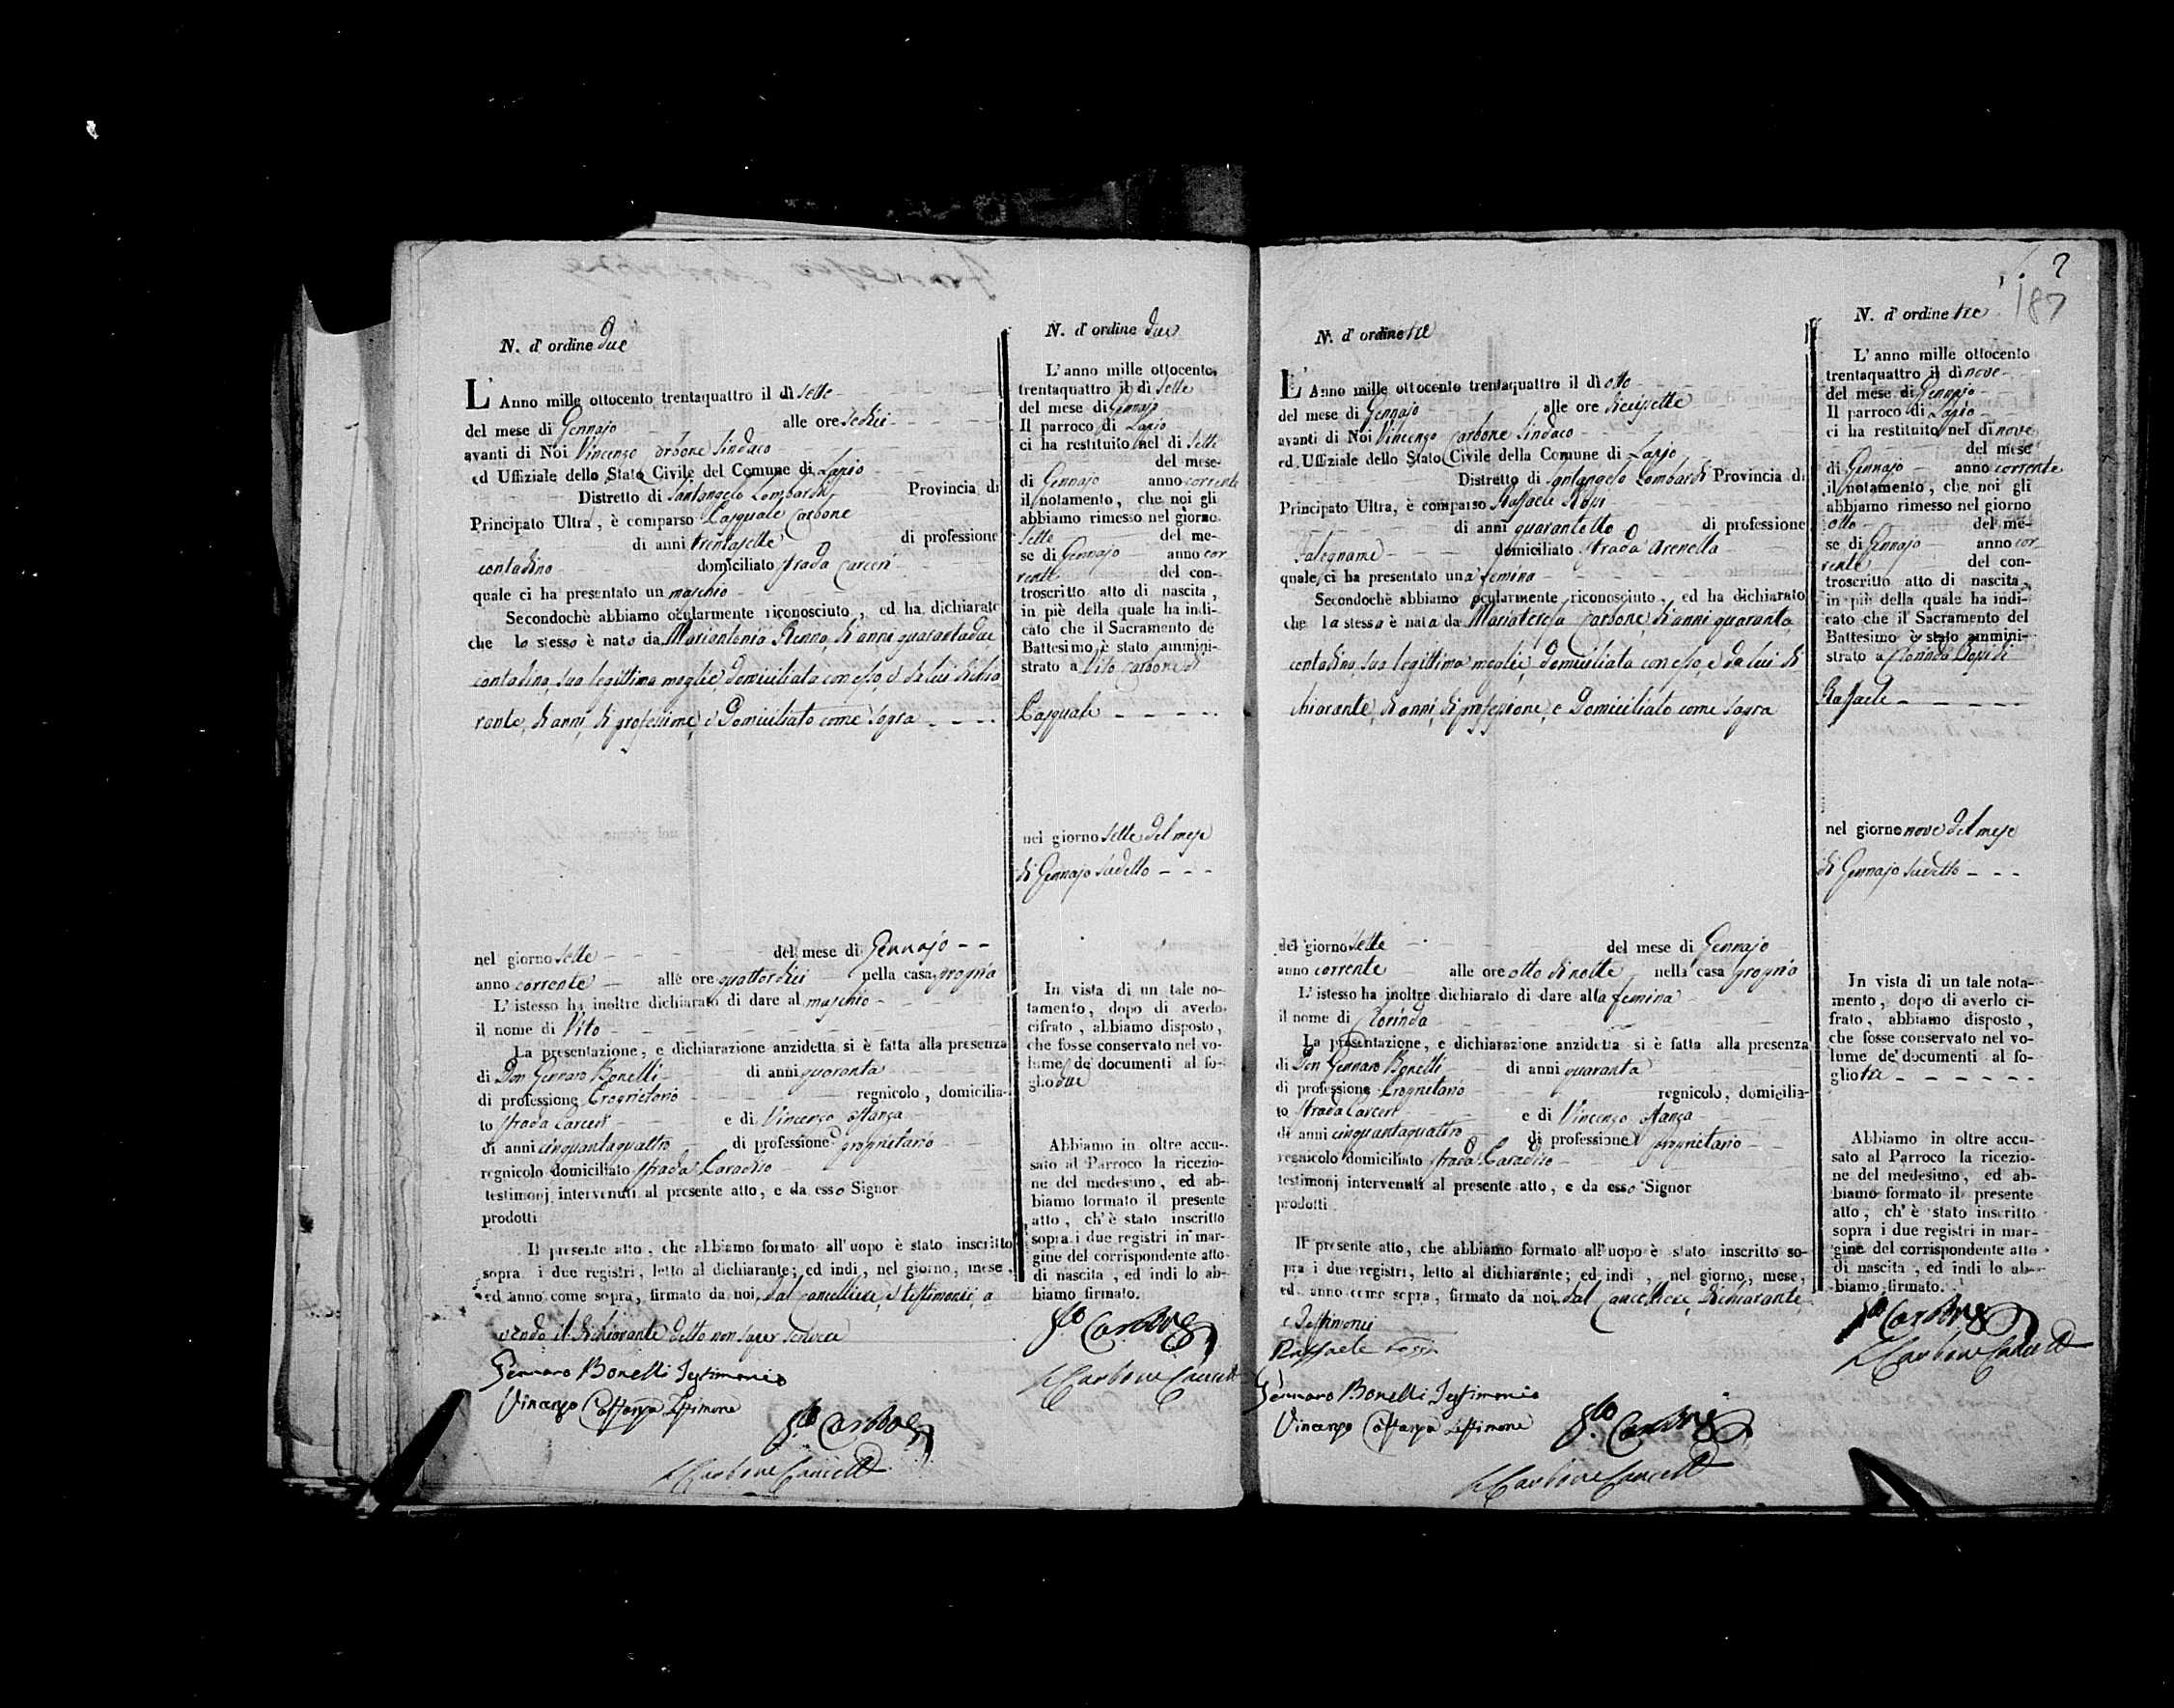 N. d' ordine due
L' Anno mille ottocento trentaquattro il dì sette
del mese di Gennajo alle ore sedici
avanti di Noi Vincenzo Carbone Sindaco
ed Uffiziale dello Stato Civile del Comune di Lapio
Distretto di Santangelo Lombardi Provincia di
Principato Ultra, è comparso Pasquale Carbone
di anni trentasette di professione
contadino domiciliato strada Carceri
quale ci ha presentato un maschio
Secondochè abbiamo ocularmente riconosciuto, ed ha dichiarato
che lo stesso è nato da Mariantonia Renna, di anni quarantadue
contadina, sua legittima moglie, domiciliata con esso, e da lui dichia-
rante, di anni, di professione, e domiciliato come sopra
nel giorno sette del mese di Gennajo
anno corrente alle ore quattordici nella casa propria
L' istesso ha inoltre dichiarato di dare al maschio
il nome di Vito
La presentazione, e dichiarazione anzidetta si è fatta alla presenza
di Don Gennaro Bonelli di anni quaranta
di professione Proprietario regnicolo, domicilia-
to strada Carceri e di Vincenzo
di anni cinquantaquattro di professione proprietario
regnicolo domiciliato strada Paradiso
testimonj intervenuti al presente atto, e da esso Signor
prodotti
Il presente atto, che abbiamo formato all' uopo è stato inscritto
sopra i due registri, letto al dichiarante; ed indi, nel giorno, mese,
ed anno come sopra, firmato da noi, dal Cancelliere, e testimonii, a
vendo il dichiarante detto non saper scrivere
Gennaro Bonelli Testimonio
Vincenzo Testimone
Carbone
Carbone Cancell
N. d' ordine due
L' anno mille ottocento
trentaquattro il dì sette
del mese di Gennajo
Il parroco di Lapio
ci ha restituito nel dì sette
del mese
di Gennajo anno corrente
il notamento, che noi gli
abbiamo rimesso nel giorno
sette del me-
se di Gennajo anno cor
rente del con-
troscritto atto di nascita,
in piè della quale ha indi-
cato che il Sacramento de
Battesimo è stato ammini-
strato a Vito Carbone di
Pasquale
nel giorno sette del mese
di Gennajo sudetto
In vista di un tale no-
tamento, dopo di averlo
cifrato, abbiamo disposto,
che fosse conservato nel vo-
lume de' documenti al fo-
glio due
Abbiamo in oltre accu-
sato al Parroco la ricezio-
ne del medesimo, ed ab-
biamo formato il presente
atto, ch' è stato inscritto
sopra i due registri in mar-
gine del corrispondente atto
di nascita, ed indi lo ab-
biamo firmato.
Carbone
Carbone Cancell
N. d' ordine tre
L' Anno mille ottocento trentaquattro il dì otto
del mese di Gennajo alle ore diecisette
avanti di Noi Vincenzo Carbone Sindaco
ed Uffiziale dello Stato Civile della Comune di Lapio
Distretto di Santangelo Lombardi Provincia di
Principato Ultra, è comparso Raffaele
di anni quarantotto di professione
Falegname domiciliato strada Arenella
quale ci ha presentato una femina
Secondochè abbiamo ocularmente riconosciuto, ed ha dichiarato
che la stessa è nata da Mariateresa Carbone, di anni quaranta
contadina, sua legittima moglie, domiciliata con esso, e da lui di
chiarante, di anni, di professione, e domiciliato come sopra
del giorno sette del mese di Gennajo
anno corrente alle ore otto di notte nella casa propria
L' istesso ha inoltre dichiarato di dare alla femina
il nome di Clorinda
La presentazione, e dichiarazione anzidetta si è fatta alla presenza
di Don Gennaro Bonelli di anni quaranta
di professione Proprietario regnicolo, domicilia-
to strada Carceri e di Vincenzo
di anni cinquantaquattro di professione proprietario
regnicolo domiciliato strada Paradiso
testimonj intervenuti al presente atto, e da esso Signor
prodotti
Il presente atto, che abbiamo formato all' uopo è stato inscritto so-
pra i due registri, letto al dichiarante; ed indi, nel giorno, mese,
ed anno come sopra, firmato da noi, dal Cancelliere, dichiarante,
e Testimonii
Raffaele
Gennaro Bonelli Testimonio
Vincenzo Testimone
Carbone
Carbone Cancell
2
187
N. d' ordine tre
L' anno mille ottocento
trentaquattro il dì nove
del mese di Gennajo
Il parroco di Lapio
ci ha restituito nel dì nove
del mese
di Gennajo anno corrente
il notamento, che noi gli
abbiamo rimesso nel giorno
otto del me-
se di Gennajo anno cor-
rente del con-
troscritto atto di nascita,
in piè della quale ha indi-
cato che il Sacramento del
Battesimo è stato ammini-
strato a Clorinda di
Raffaele
nel giorno nove del mese
di Gennajo sudetto
In vista di un tale nota-
mento, dopo di averlo ci-
frato, abbiamo disposto,
che fosse conservato nel vo-
lume de' documenti al fo-
glio tre
Abbiamo in oltre accu-
sato al Parroco la ricezio-
ne del medesimo, ed ab-
biamo formato il presente
atto, ch' è stato inscritto
sopra i due registri in mar-
gine del corrispondente atto
di nascita, ed indi lo ab-
biamo firmato.
Carbone
Carbone Cancell